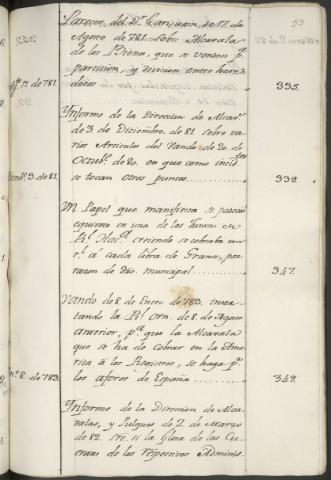 53
Parecer del D.r Lariuain de 17. de
Agosto de 781. sobre Alcavala
de los Bienes, que se venden p.a
particion, y division entre here
deros ........ 335.
Ag.to 17. de 781.
Informe de la Direccion de Alcav.s
de 3. de Diciembre. de 81. sobre va
rios Articulos del Vando de 20. de
Octub.e de 80. en que como incid.tes
se tocan otros puntos ........ 339.
3. de 81.
Un Papel que manifiesta se padecia
equivoco en una de las
R.l Hac.a creiendo se cobraba un
r.l á cada libra de Grana, por
razon de dro. municipal ........ 347.
Vando de 8. de Enero de 783. inser
tando la R.l Orn. de 8. de Agosto
anterior, p.a que la Alcavala
que se ha de cobrar en la Ame
rica á los Registros, se haga p.r
los aforos de España ........ 349.
8. de 783.
Informe de la Direccion de Alca
valas, y Pulques de 2. de Marzo
de 82. s̃re. si la Glosa de las Cu
entas de los respectivos Adminis